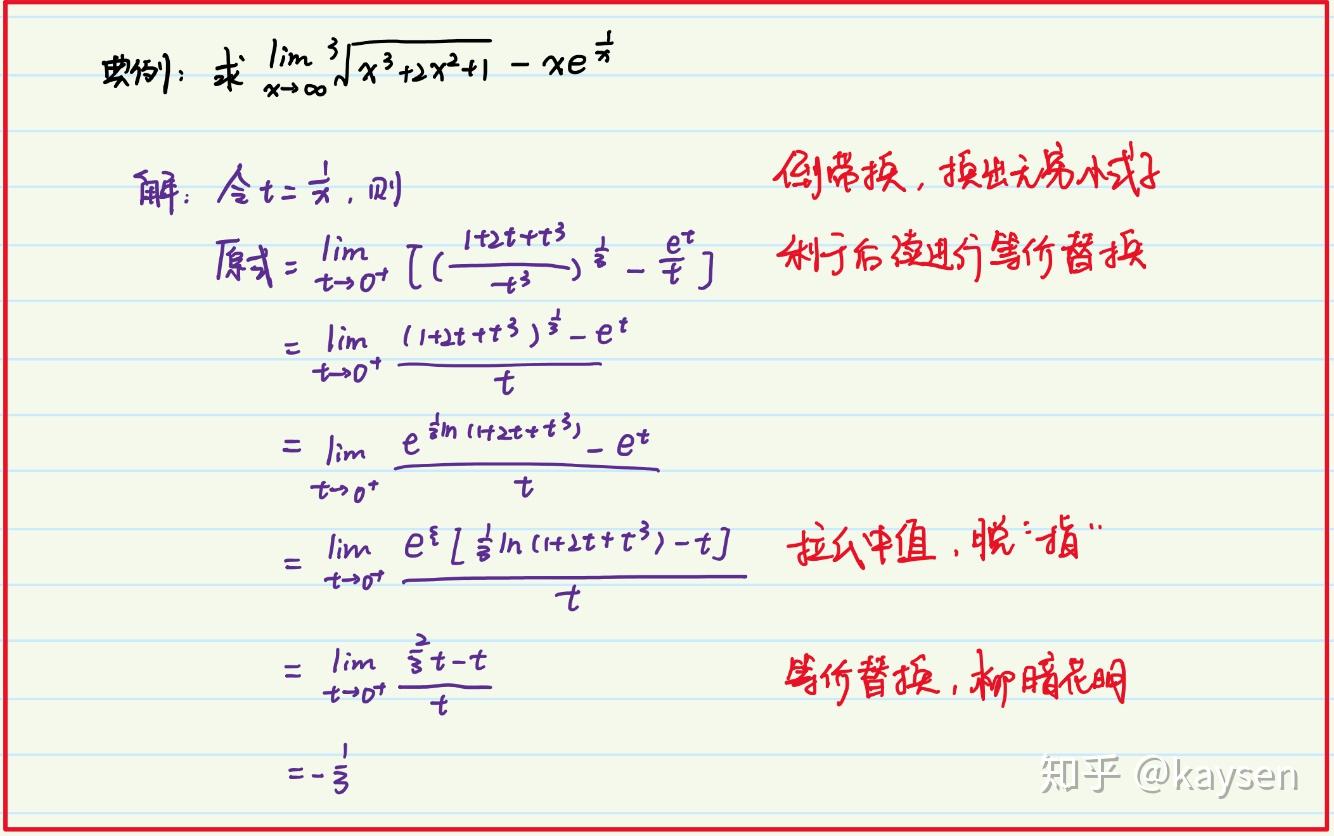 典例: 求 lim x→∞ ∛(x³+2x²+1) - xe^(1/x)
解: 令 t = 1/x, 则
倒带换, 换出无穷小式子
原式 = lim t→0⁺ [((1+2t+t³)/t³)^(1/3) - e^t/t]
利于后续进行等价替换
= lim t→0⁺ ((1+2t+t³)^(1/3) - e^t)/t
= lim t→0⁺ (e^(1/3 ln(1+2t+t³)) - e^t)/t
= lim t→0⁺ e^ξ[1/3 ln(1+2t+t³) - t]/t
拉氏中值, 脱“指”
= lim t→0⁺ (2/3 t - t)/t
等价替换, 柳暗花明
= - 1/3
知乎 @kaysen